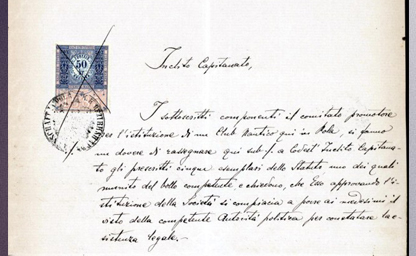 50
Inclito Capitanato,
I sottoscritti componenti il comitato promotore
per l'istituzione di un Club Nautico qui in Pola, si fanno
un dovere di rassegnare qui sub /. a Codest' Inclito Capitana-
to gli prescritti cinque esemplari dello Statuto uno dei quali
munito del bollo competente e chiedono, che Esso approvando l'i-
stituzione della Società si compiaccia a porre ai medesimi il
visto della competente Autorità politica per constatare la
sistenza legale.-